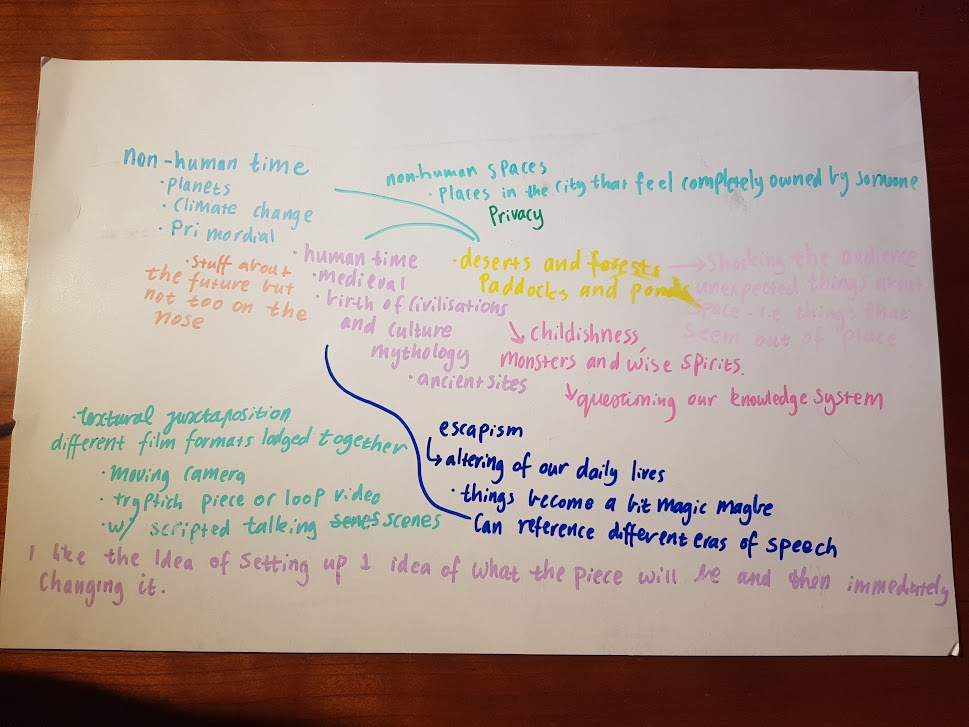 non-human time
· planets
· Climate change
· Primordial
· Stuff about
the future but
not too on the
nose
non-human spaces
· Places in the city that feel completely owned by someone
Privacy
· human time
· medieval
· birth of civilisations
and culture
mythology
· ancient sites
· deserts and forests
Paddocks and ponds
→ Shocking the audience
unexpected things about
space - i.e things that
seem out of place
↘ childishness,
monsters and wise spirits.
↘ questioning our knowledge system
· textural juxtaposition
different film formats lodged together
· moving camera
· tryptich piece or loop video
· w/ scripted talking senes scenes
escapism
↳ altering of our daily lives
· things become a bit magic maybe
Can reference different eras of speech
I like the Idea of setting up 1 idea of what the piece will be and then immediately
changing it.